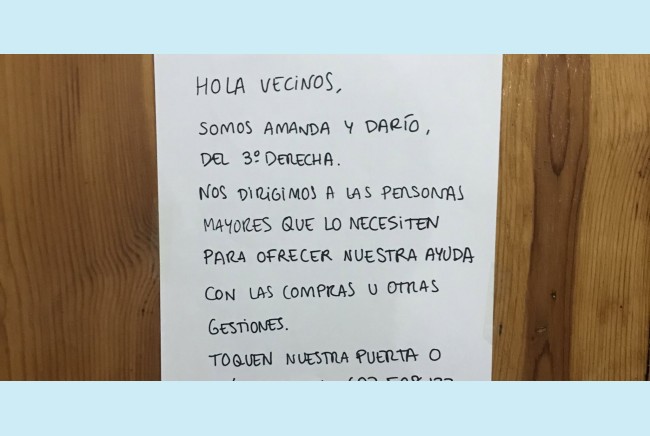 HOLA VECINOS,
SOMOS AMANDA Y DARÍO,
DEL 3º DERECHA.
NOS DIRIGIMOS A LAS PERSONAS
MAYORES QUE LO NECESITEN
PARA OFRECER NUESTRA AYUDA
CON LAS COMPRAS U OTRAS
GESTIONES.
TOQUEN NUESTRA PUERTA O